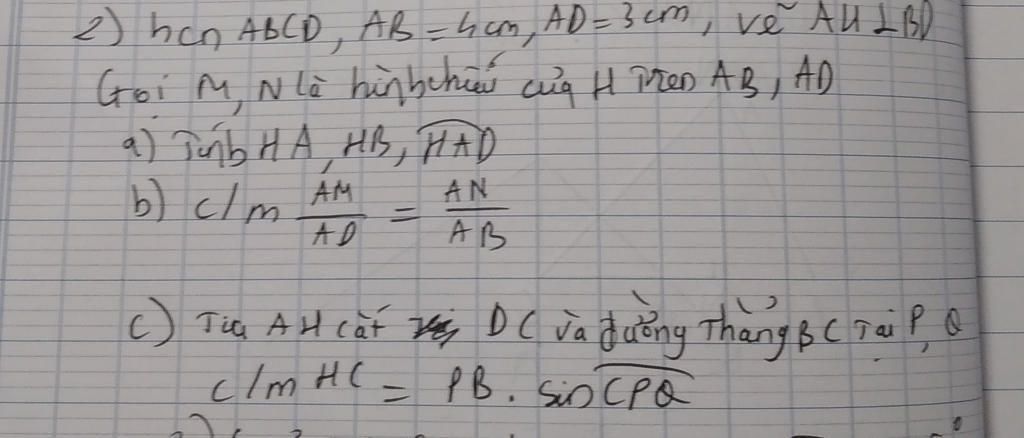 2) hcn ABCD, AB = 4 cm, AD = 3 cm, vẽ AH ⊥ BD
Gọi M, N là hình chiếu của H trên AB, AD
a) Tính HA, HB, HAD
b) c/m AM/AD = AN/AB
c) Tia AH cắt DC và đường thẳng BC tại P, Q
c/m HC = PB . sin CPQ